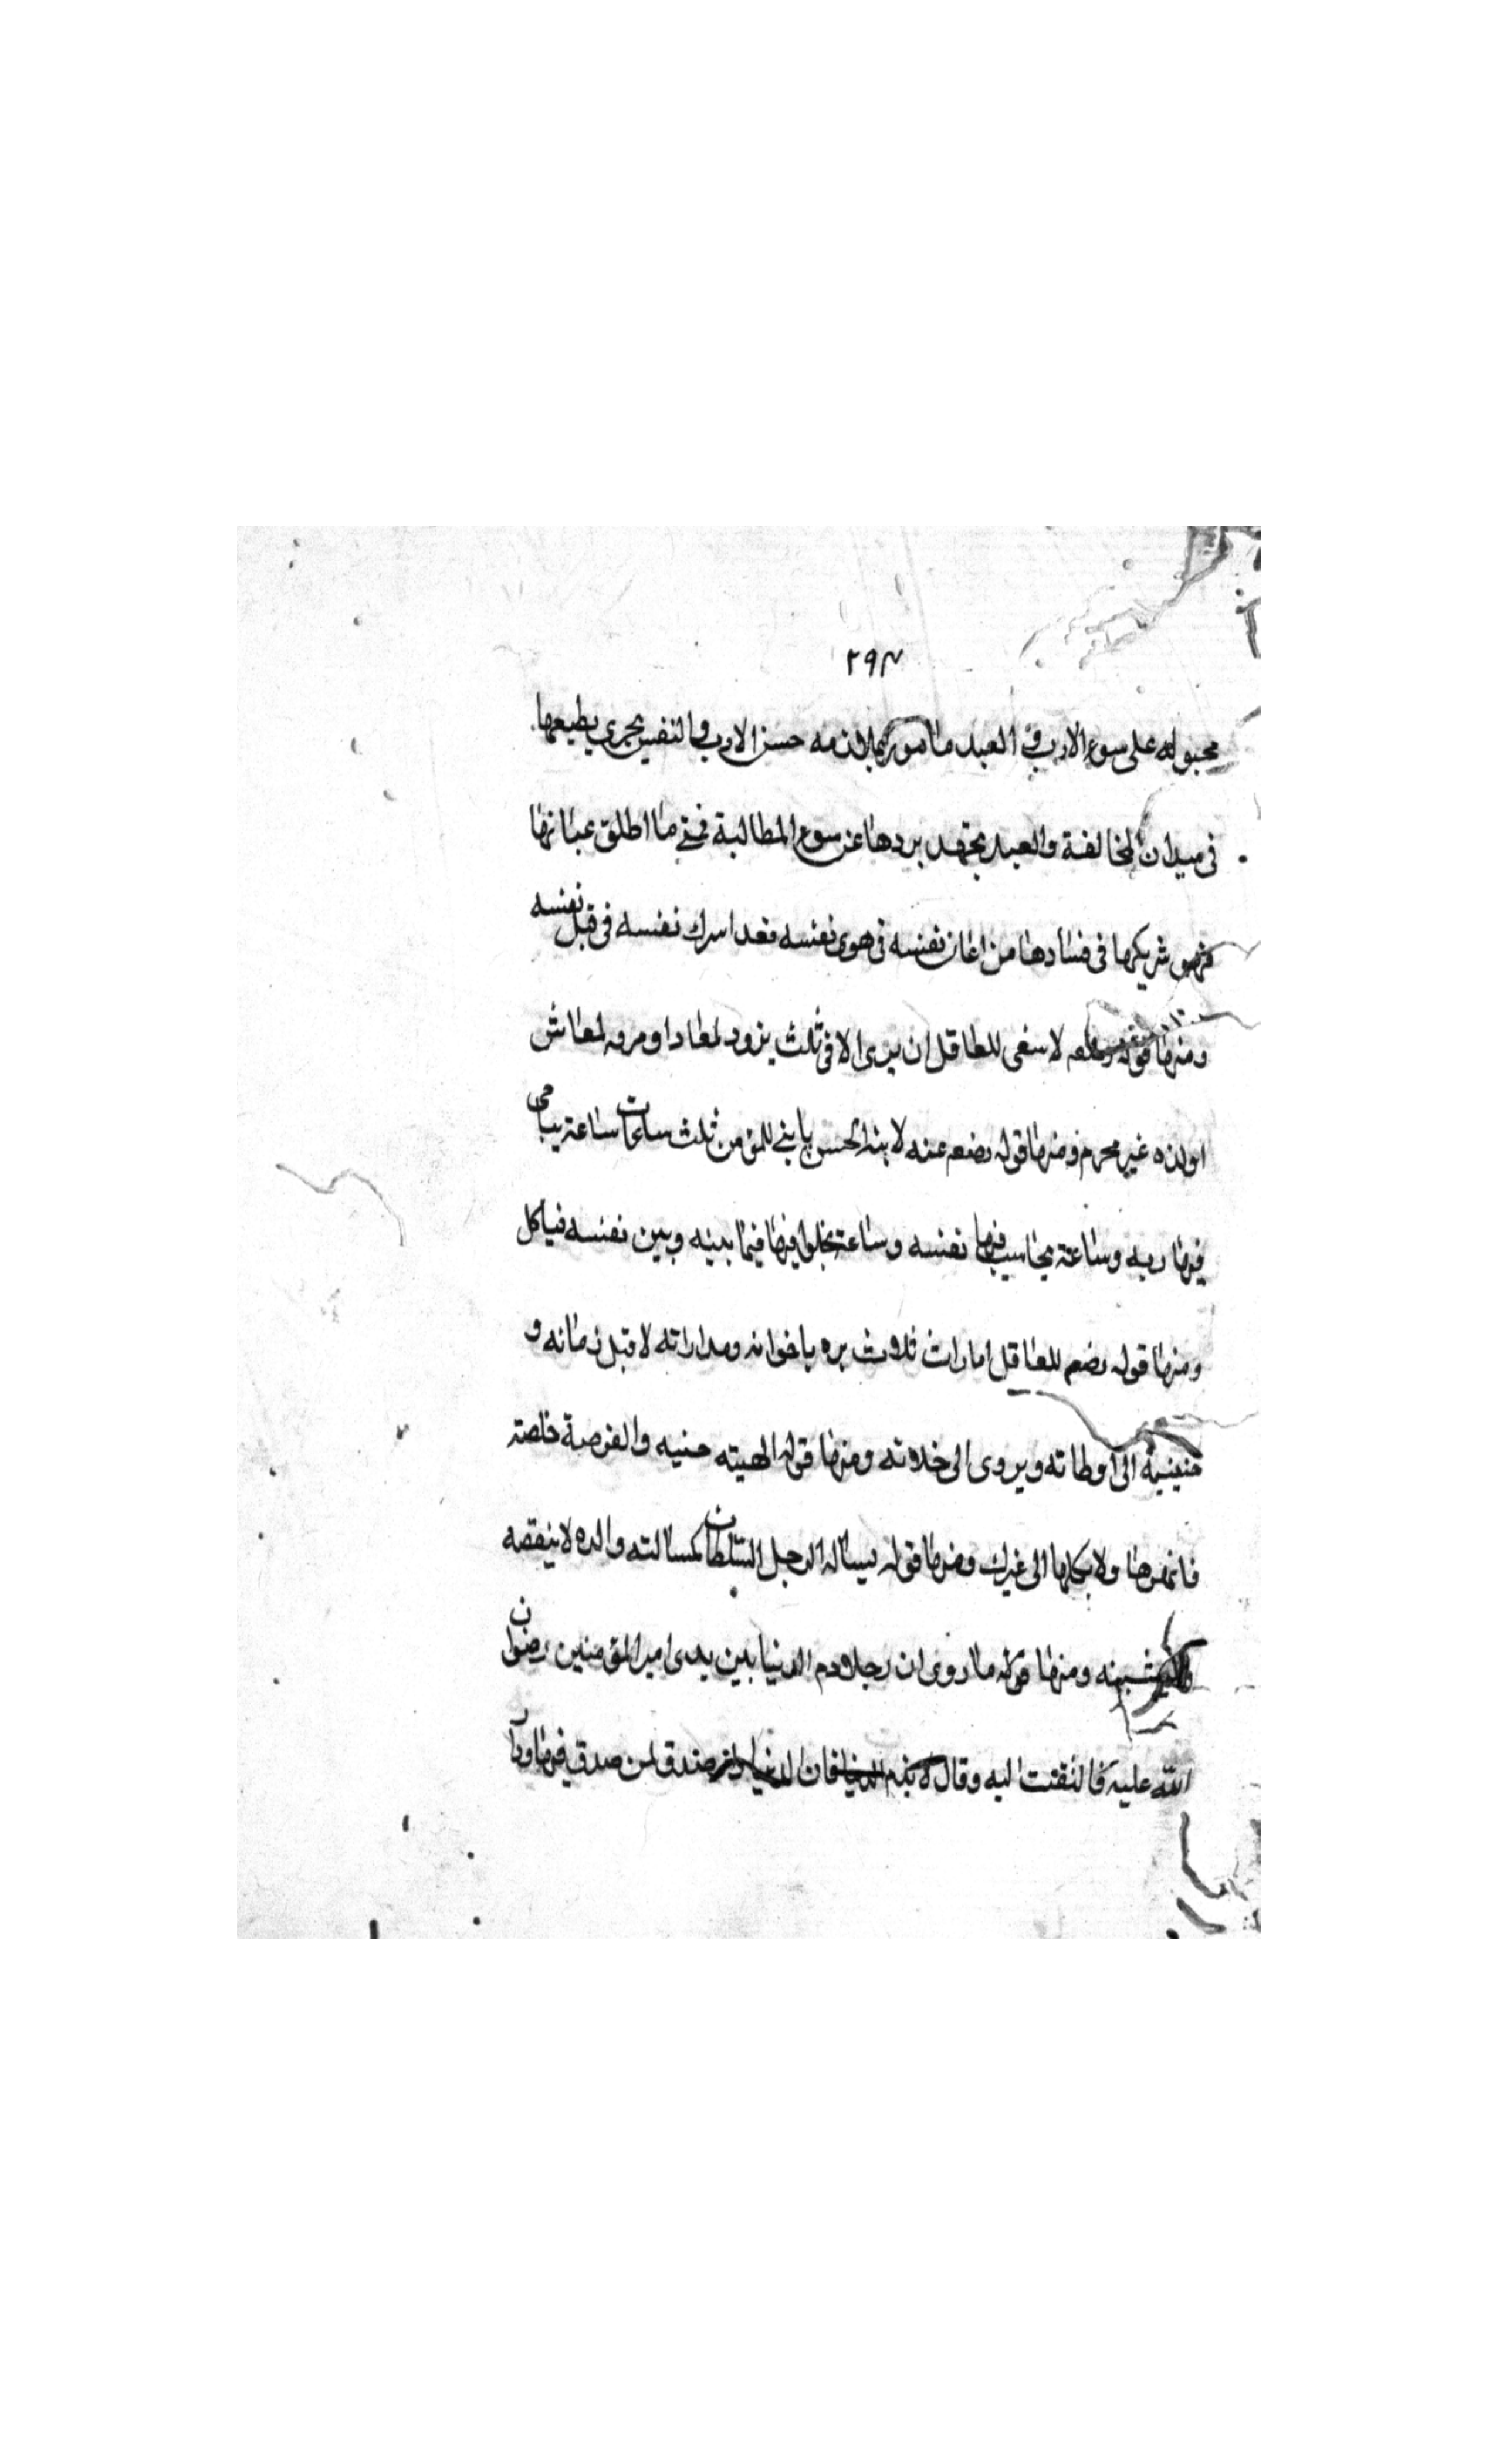 ٢٩٣
مجبوله على سوء الادب و العبد مامور بملازمه حسن الادب والنفس تجرى بطبعها
فى ميدان المخالفة والعبد يجتهد بردها عن سوء المطالبة فمتى ما اطلق عنانها
فهو شريكها فى فسادها من اعان نفسه فى هوى نفسه فقد اشرك نفسه فى قتل نفسه
ومنها قوله لا ينبغى للعاقل ان يرى الا فى ثلث تزود لمعاد او مرمه لمعاش
او لذه غير محرم ومنها قوله رضعم عنه لابنه الحسن يا بنى للمؤمن ثلث ساعات ساعة يناجى
فيها ربه وساعة يحاسب فيها نفسه وساعة يخلو فيها فيما بينه وبين نفسه فياكل
ومنها قوله رضعم للعاقل امارات ثلاث بره باخوانه ومداراته لاقبل زمانه و
حنينية الى اوطانه ويروى الى خلانه ومنها قوله الهيبته خيبه والفرصة خلصته
فانتهزها ولا تكلها الى غيرك ومنها قوله يساله الرجل السلطان كمسالته والده لا ينقصه
ومنها قوله ما روى ان رجلا ذم الدنيا بين يدى امير المؤمنين رضوان
الله عليه فالتفت اليه وقال لا تذم الدنيا فان الدنيا دار صدق لمن صدق فيها ودار